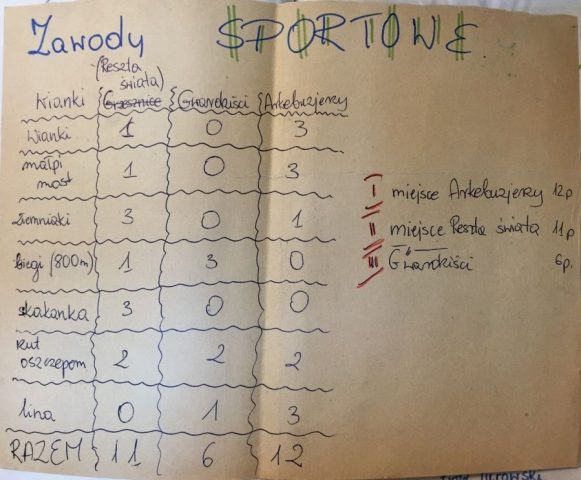 Zawody SPORTOWE
(Reszta świata)
Wianki Grzesznice Gwardziści Arkebuzjerzy
Wianki 1 0 3
małpi most 1 0 3
Ziemniaki 3 0 1
Biegi (800m) 1 3 0
skakanka 3 0 0
Rzut oszczepem 2 2 2
lina 0 1 3
RAZEM 11 6 12
I miejsce Arkebuzjerzy 12p.
II miejsce Reszta świata 11p
III Gwardziści 6p.